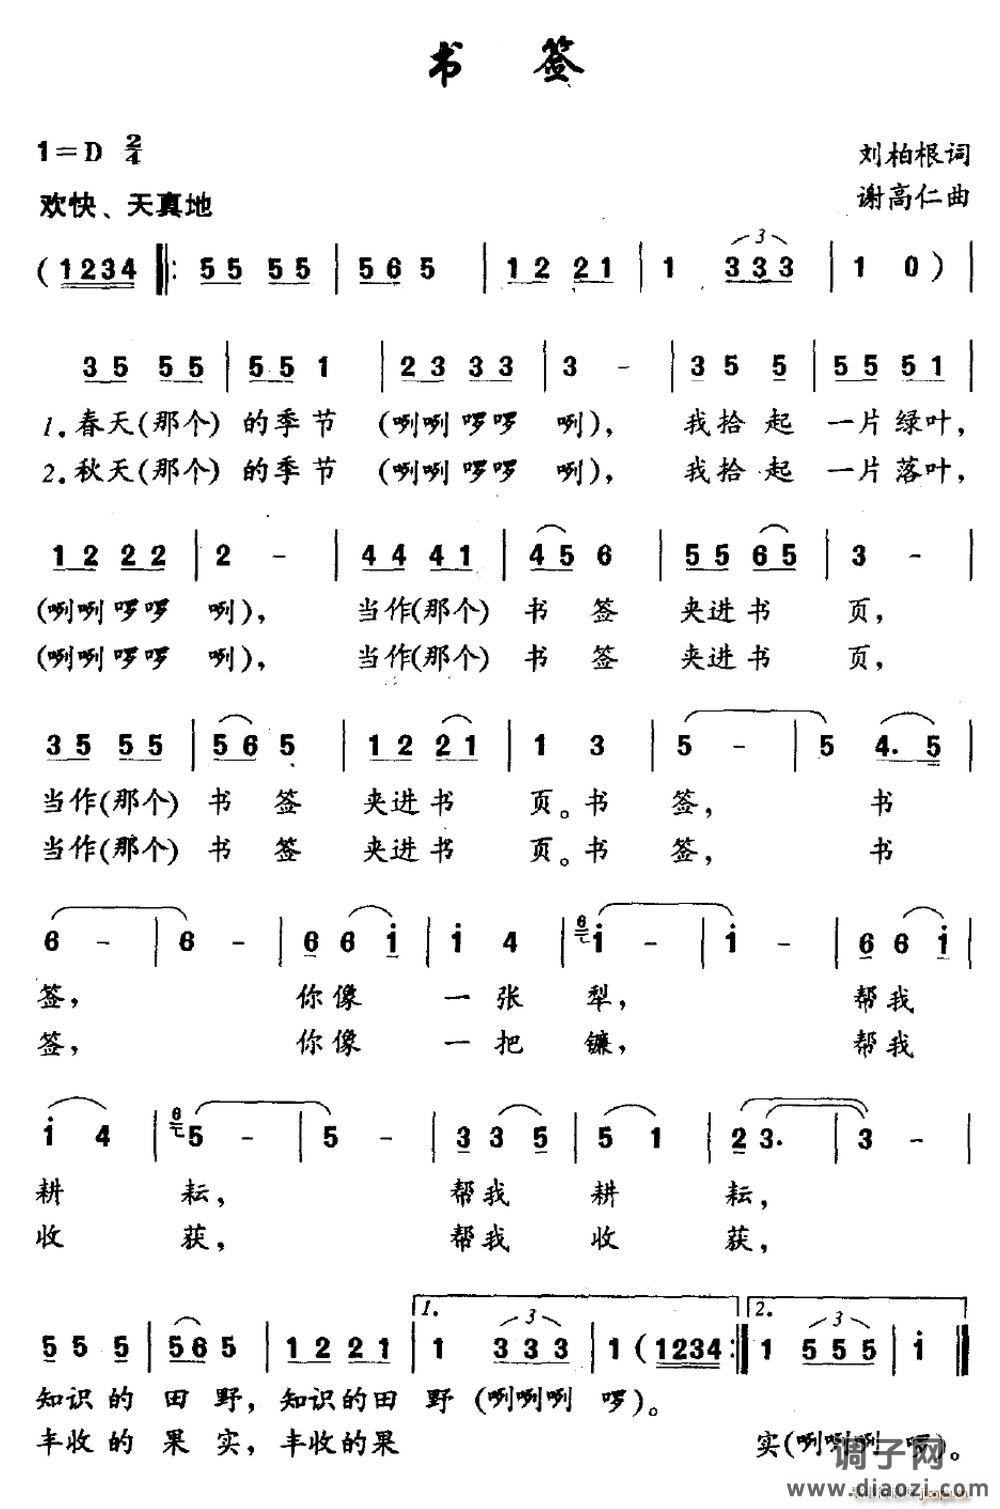 书 签
1=D 2/4
刘柏根词
欢快、天真地
谢高仁曲
(1234 ‖: 55 55 | 565 | 12 21 | 1 333 | 1 0) |
35 55 | 55 1 | 23 33 | 3 - | 35 5 | 55 51 |
1.春天(那个) 的季节 (咧咧啰啰 咧), 我拾起 一片绿叶,
2.秋天(那个) 的季节 (咧咧啰啰 咧), 我拾起 一片落叶,
12 22 | 2 - | 44 41 | 45 6 | 55 65 | 3 - |
(咧咧啰啰 咧), 当作(那个) 书 签 夹进书 页,
(咧咧啰啰 咧), 当作(那个) 书 签 夹进书 页,
35 55 | 56 5 | 12 21 | 1 3 | 5 - | 5 4.5 |
当作(那个) 书 签 夹进书 页。书 签, 书
当作(那个) 书 签 夹进书 页。书 签, 书
6 - | 6 - | 6 6 i | i 4 | 6 i - | i - | 6 6 i |
签, 你像 一张 犁, 帮我
签, 你像 一把 镰, 帮我
i 4 | 6 5 - | 5 - | 3 3 5 | 5 1 | 2 3. | 3 - |
耕 耘, 帮我 耕 耘,
收 获, 帮我 收 获,
1. 3 2. 3
5 5 5 | 56 5 | 12 21 | 1 333 | 1 (1234 :‖ 1 555 | i ‖
知识的 田 野, 知识的田 野 (咧咧咧 啰)。
丰收的 果 实, 丰收的果 实(咧咧咧 啰)。
调子网
www.diaozi.com